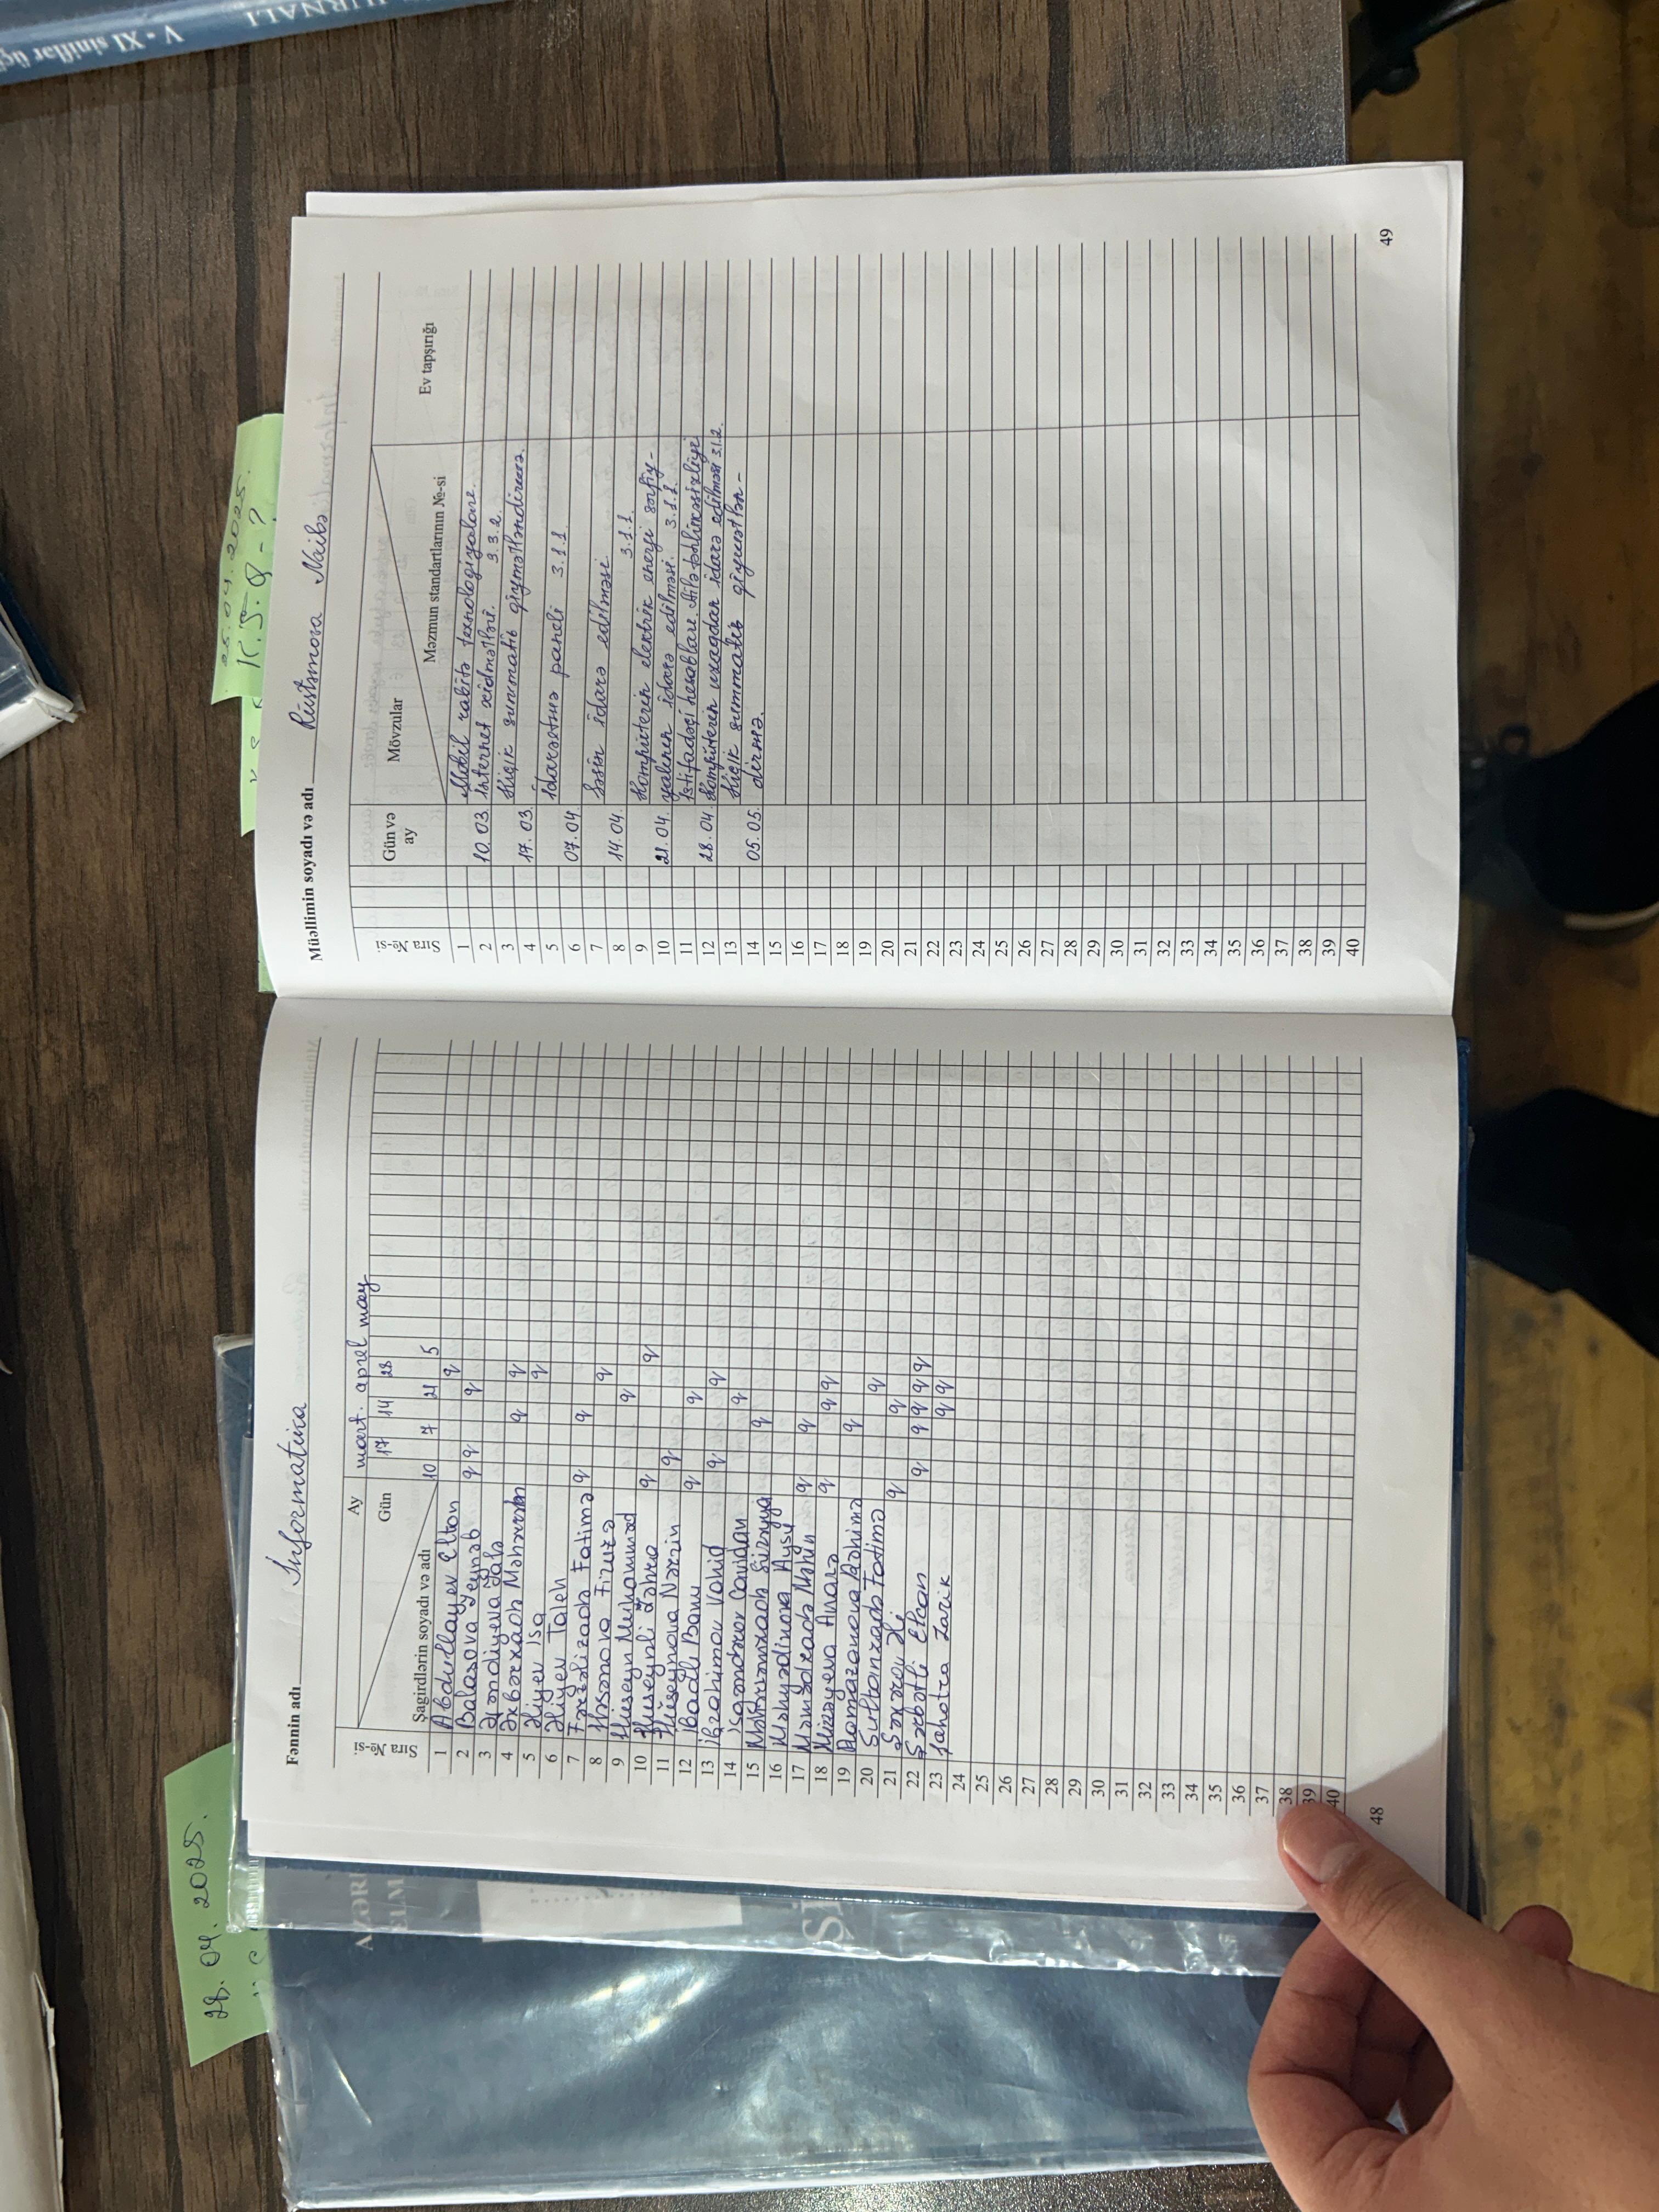 28. 04. 2025.
25.04.2025.
K.S.Q - ?
V - XI siniflər üçün
AZƏR
ELM
Fənnin adı İnformatika
Ay mart. aprel may
Sıra №-si
Gün 17 14 28
Şagirdlərin soyadı və adı 10 7 21 5
1 Abdullayev Elton q
2 Balasova Zeynəb q q q
3 Əfəndiyeva Jalə
4 Əkbərzadə Məhərrəm q q
5 Əliyev İsa q
6 Əliyev Taleh
7 Fərzəlizadə Fatimə q q
8 Həsənova Firuzə q
9 Hüseyn Muhəmməd q
10 Huseynli Zəhra q q
11 Hüseynova Nərzin q
12 İbadlı Banu q q
13 İbrahimov Vahid q q
14 İsgəndərov Cavidan q
15 Məhərrəmzadə Sürəyya q
16 Məhyədinova Aysu
17 Məmədzadə Məhin q q
18 Mirzəyeva Anarə q q q
19 Ramazanova Rəhimə q
20 Sultanzadə Fatimə q
21 Şəkərov Əli q q
22 Şərbətli Elcan q q q q q
23 Jahotra Zarik q q
24
25
26
27
28
29
30
31
32
33
34
35
36
37
38
39
40
48
Müəllimin soyadı və adı Rüstəmova Naibə
Sıra №-si
Gün və ay
Mövzular
Məzmun standartlarının №-si
Ev tapşırığı
1 Mobil rabitə texnologiyaları.
2 10.03. İnternet xidmətləri. 3.3.2.
3 Kiçik summativ qiymətləndirmə.
4 17.03.
5 İdarəetmə paneli 3.1.1.
6 07.04.
7 Səsin idarə edilməsi.
8 14.04. 3.1.1.
9 Kompüterin elektrik enerji sərfiy-
10 21.04. yatının idarə edilməsi. 3.1.1.
11 İstifadəçi hesabları. Ailə təhlükəsizliyi
12 28.04. Kompüterin uzaqdan idarə edilməsi 3.1.2.
13 Kiçik summativ qiymətlən-
14 05.05. dirmə.
15
16
17
18
19
20
21
22
23
24
25
26
27
28
29
30
31
32
33
34
35
36
37
38
39
40
49